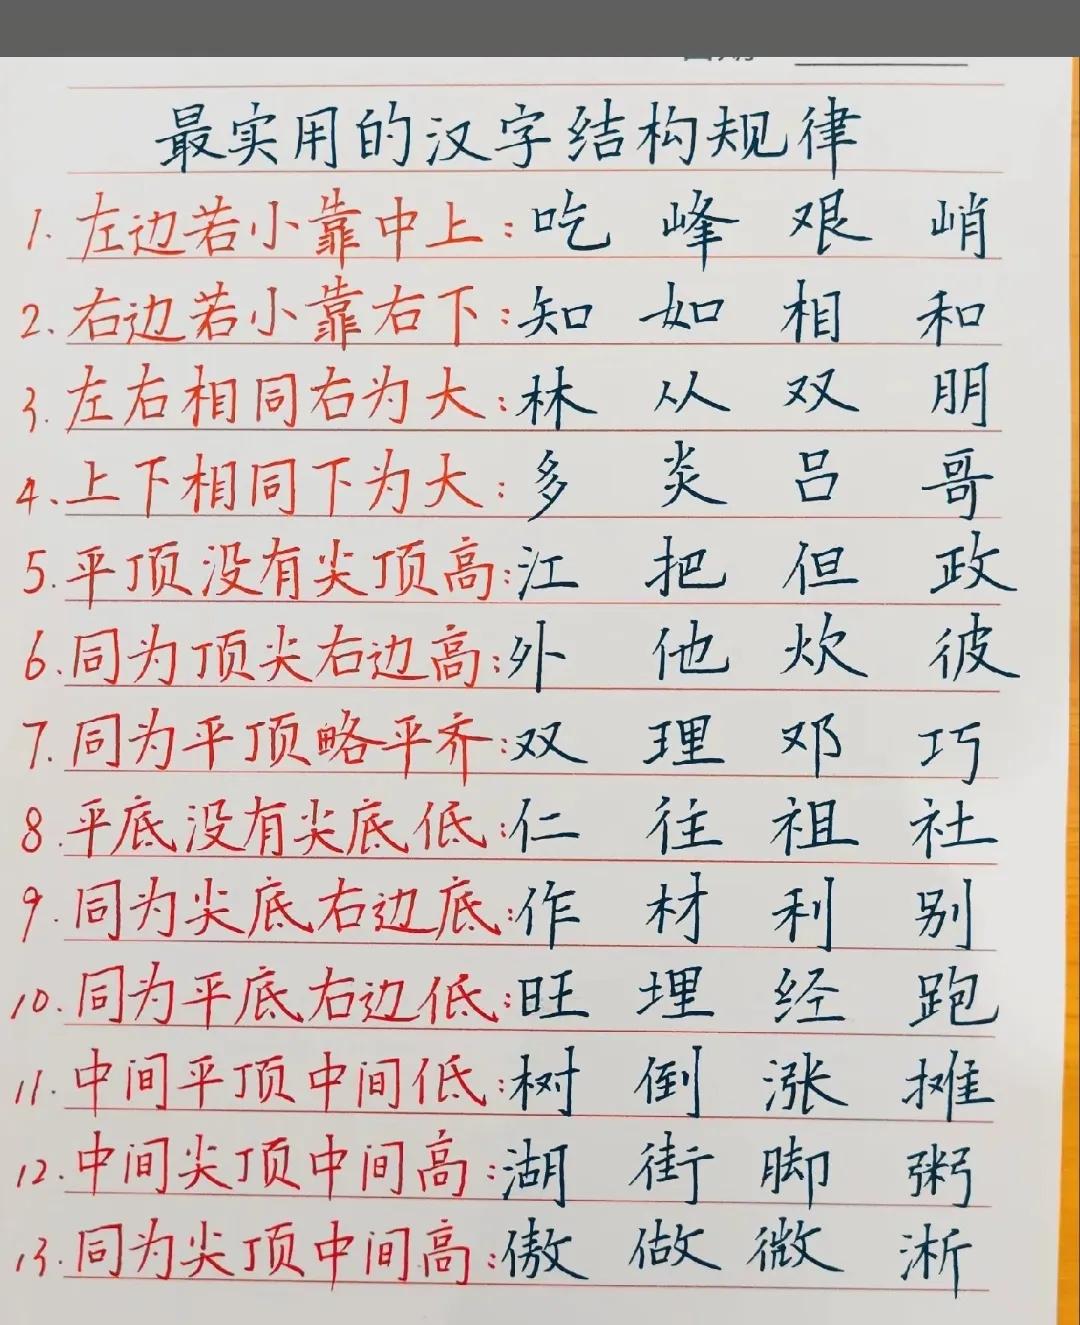 最实用的汉字结构规律
1. 左边若小靠中上:吃 峰 艰 峭
2. 右边若小靠右下:知 如 相 和
3. 左右相同右为大:林 从 双 朋
4. 上下相同下为大:多 炎 吕 哥
5. 平顶没有尖顶高:江 把 但 政
6. 同为顶尖右边高:外 他 炊 彼
7. 同为平顶略平齐:双 理 邓 巧
8. 平底没有尖底低:仁 往 祖 社
9. 同为尖底右边底:作 材 利 别
10. 同为平底右边低:旺 埋 经 跑
11. 中间平顶中间低:树 倒 涨 摊
12. 中间尖顶中间高:湖 街 脚 粥
13. 同为尖顶中间高:傲 做 微 淅